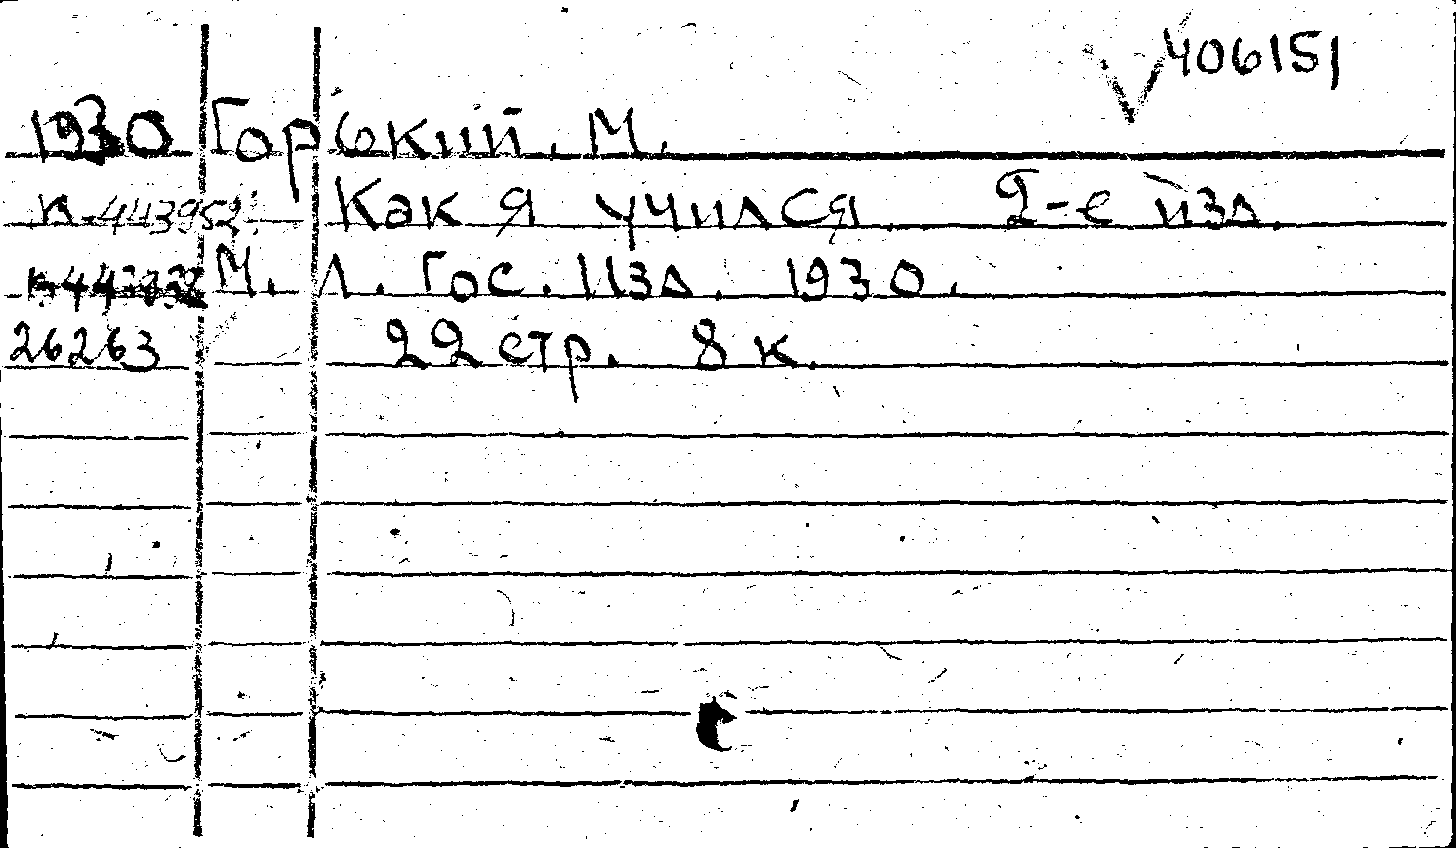 406151
1930 Горький. М.
к-443952 Как я учился. 2-е изд.
М. Л. Гос. Изд. 1930.
26263 22 стр. 8 к.